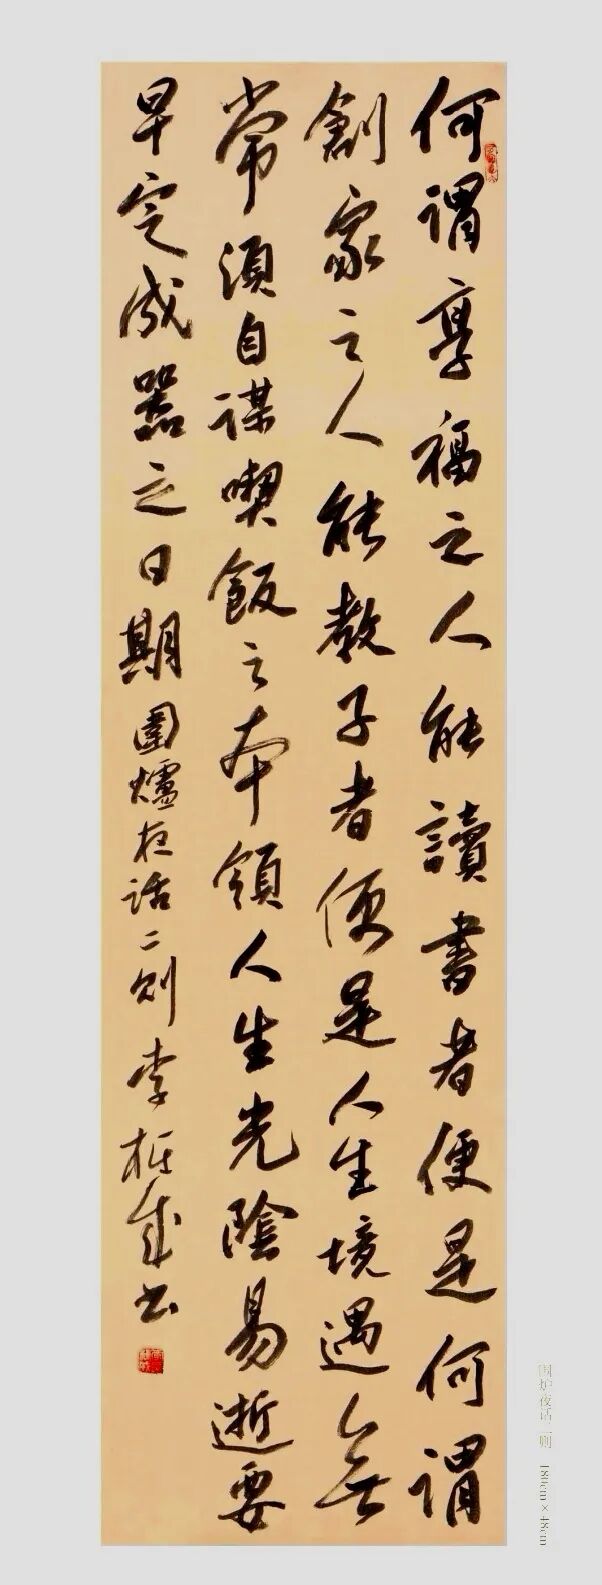 何謂享福之人能讀書者便是何謂
創家之人能教子者便是人生境遇無
常須自謀喫飯之本領人生光陰易逝要
早定成器之日期圍爐夜话二則李成书
围炉夜话二则 180cm×48cm